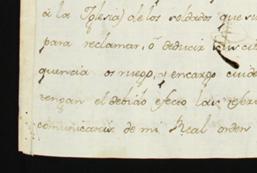 à la Iglesia) de los soldados que su
para reclamar, ô deducir
quencia os ruego, y encargo cuide
tengan el debido efecto las refer
comunicareis de mi Real orden